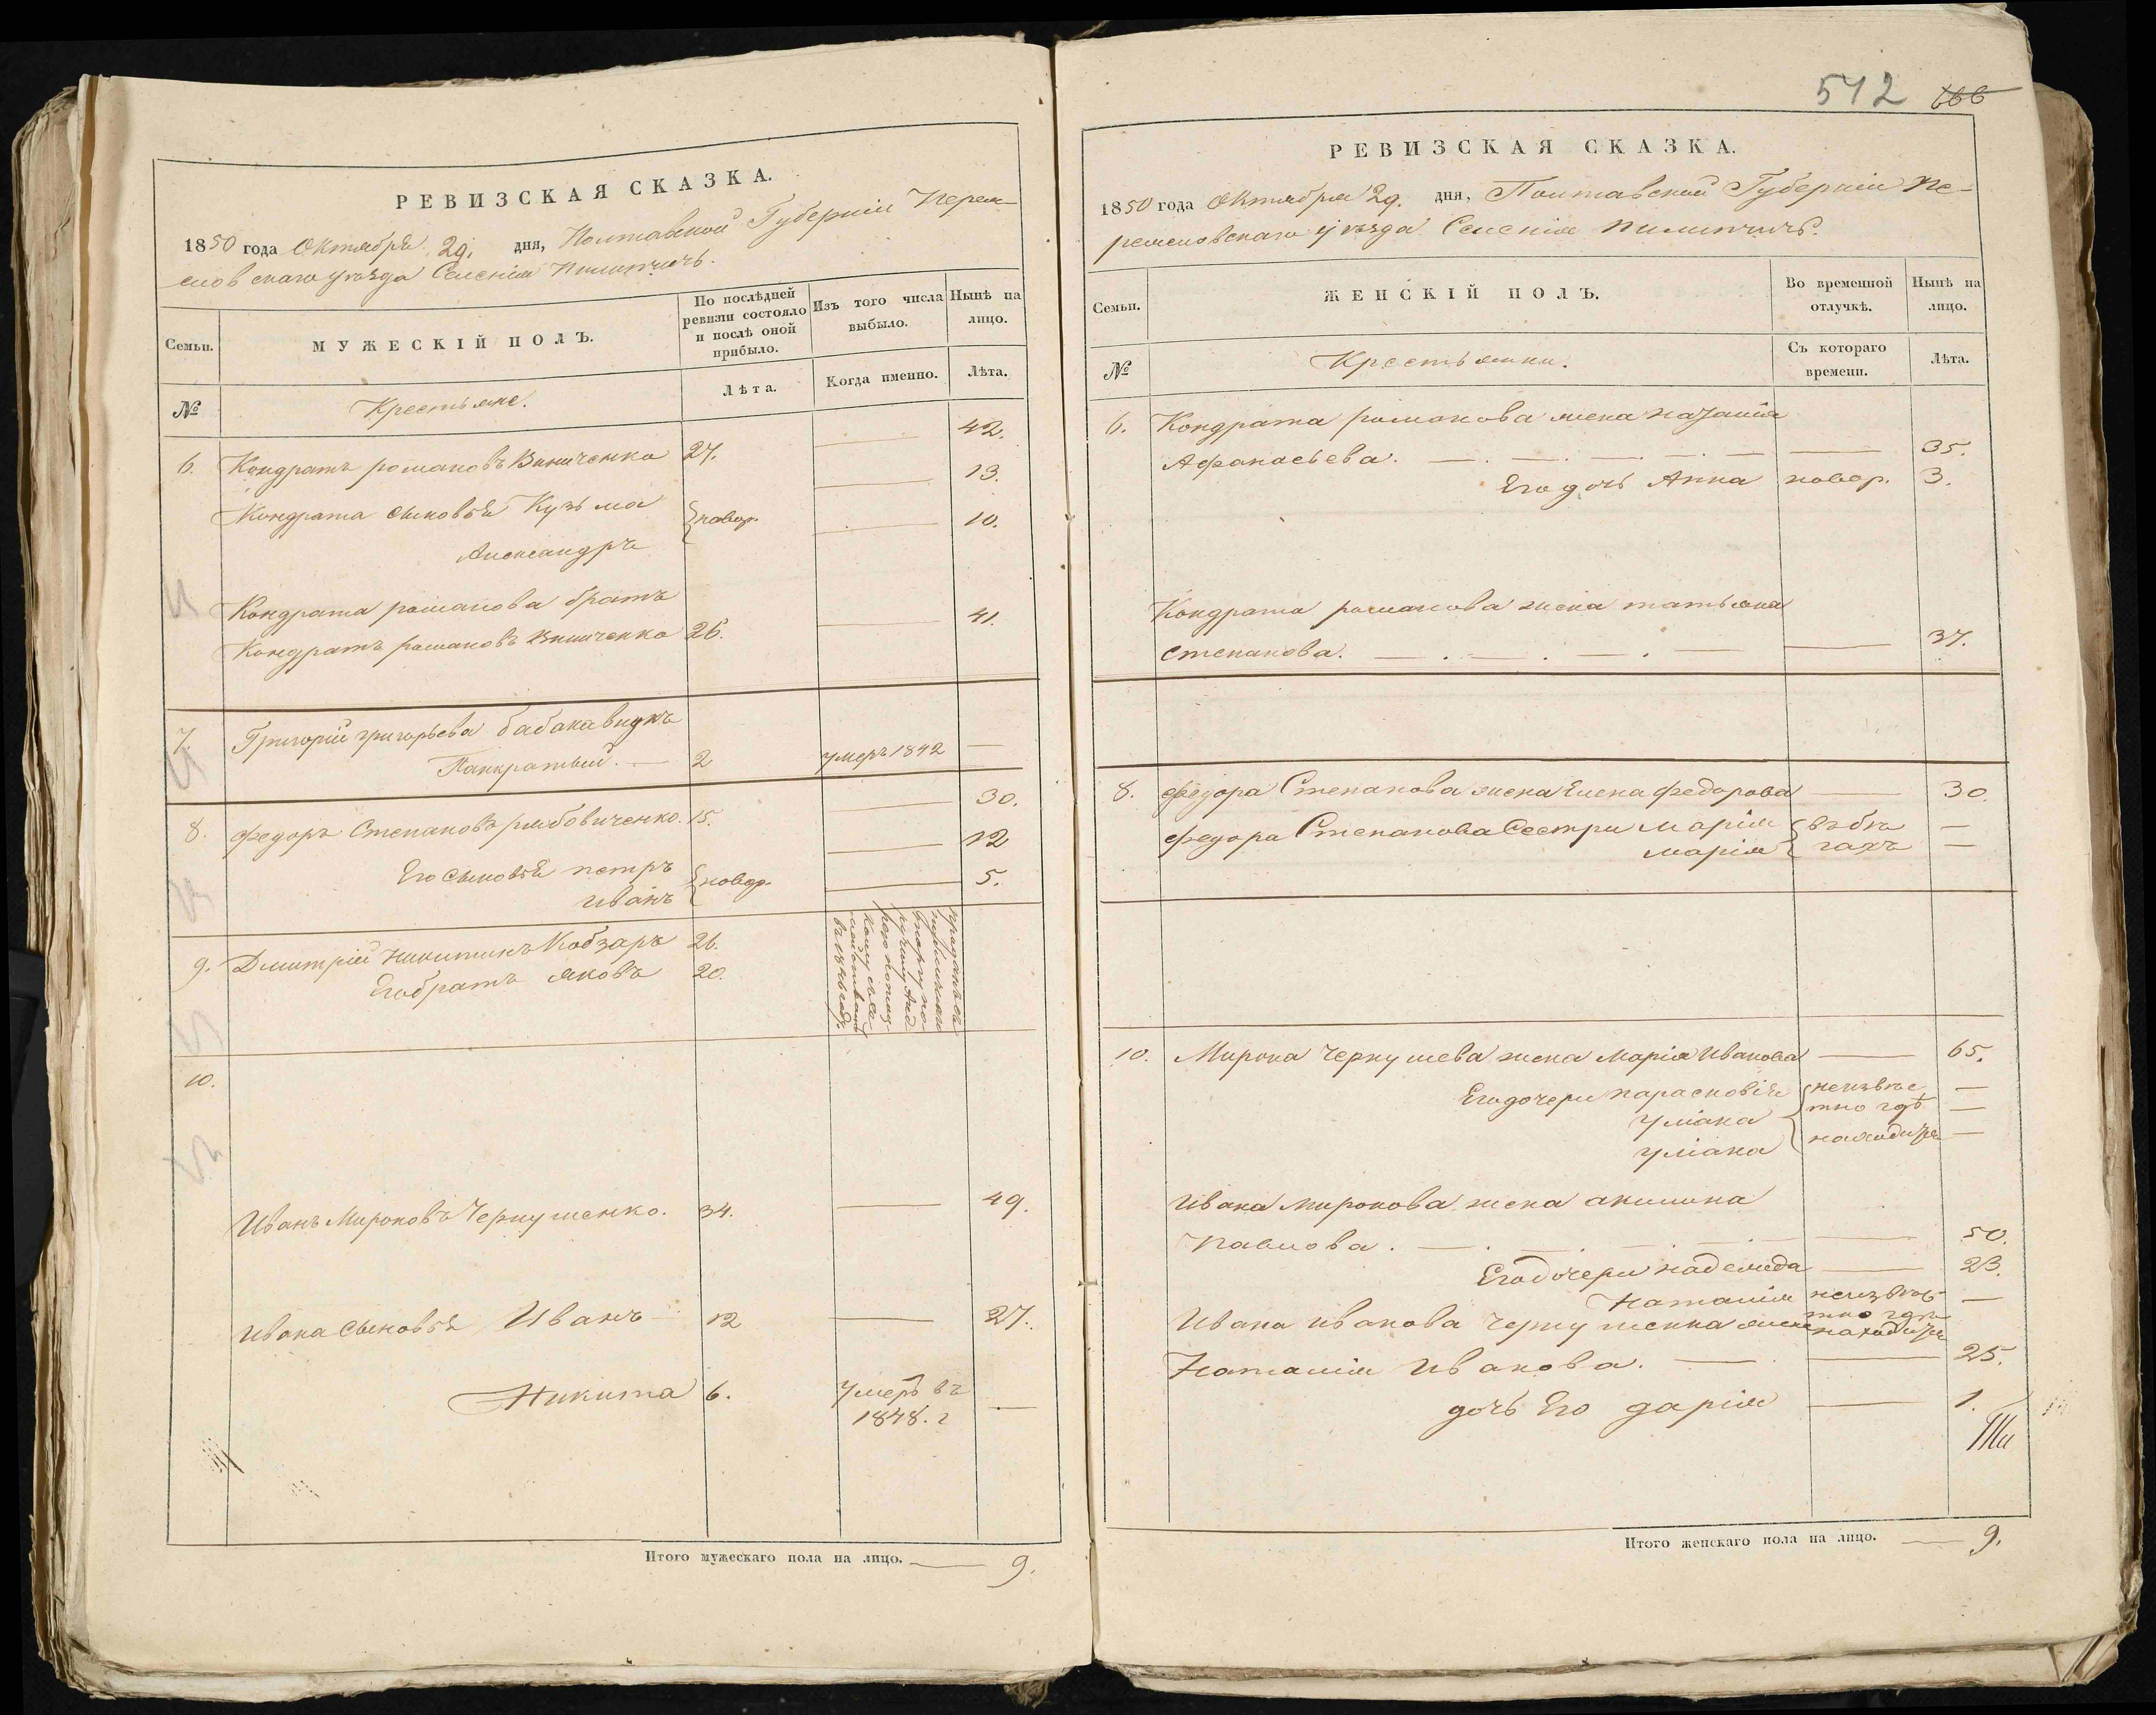 РЕВИЗСКАЯ СКАЗКА.
1850 года Октября 29. дня, Полтавской Губерніи Перея-
словскаго уѣзда Селенія Пилипчичъ.
Семьи.
МУЖЕСКІЙ ПОЛЪ.
По послѣдней ревизіи состояло и послѣ оной прибыло.
Изъ того числа выбыло.
Нынѣ на лицо.
№
Крестьяне.
Лѣта.
Когда именно.
Лѣта.
6. Кондратъ романовъ Виниченко 27. — 42.
Кондрата сыновья Кузьма новор. — 13.
Александръ — 10.
Кондрата романова братъ
Кондратъ романовъ Винниченко 26. — 41.
7. Григорій григорьева бабака внукъ
Панкратьій. — 2 умеръ 1842 —
8. федоръ Степановъ рибовиченко. 15. — 30.
Его сыновья петръ новор. — 12
иванъ — 5.
9. Дмитрій никитинъ Кобзарь 26.
Его братъ яковъ 20.
10.
Иванъ Мироновъ Чернушенко. 34. — 49.
Ивана сыновья Иванъ 12 — 27.
Никита 6. Умеръ въ —
1848. г
Итого мужескаго пола на лицо. — 9.
512 666
РЕВИЗСКАЯ СКАЗКА.
1850 года Октября 29. дня, Полтавской Губерніи Пе-
реясловскаго уѣзда Селенія Пилипчичъ.
Семьи.
ЖЕНСКІЙ ПОЛЪ.
Во временной отлучкѣ.
Нынѣ на лицо.
№
Крестьянки.
Съ котораго времени.
Лѣта.
6. Кондрата романова жена
Афанасьева. — . — . — . — . — — 35.
Его дочь Анна новор. 3.
Кондрата романова жена татьяна
степанова. — . — . — . — 37.
8. федора Степанова жена Елена федорова — 30.
федора Степанова Сестри Марія въ бѣ —
марія гахъ —
10. Мирона Чернушева жена Марія Иванова — 65.
Его дочери парасковія неизвѣс —
уліана тно гдѣ —
уліана находятся —
Ивана миронова жена акилина
Павлова. — . — . — . — . — 50.
Его дочери надежда — 23.
Наталія неизвѣс —
Ивана иванова Чернушенка жена тно гдѣ находятся
Наталія Иванова. — . — 25.
дочь Его дарія — 1.
Итого женскаго пола на лицо. — 9.